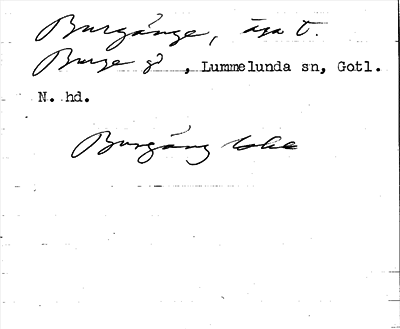 Burgänge, äga t.
Burge gd, Lummelunda sn, Gotl.
N. hd.
Burgäng